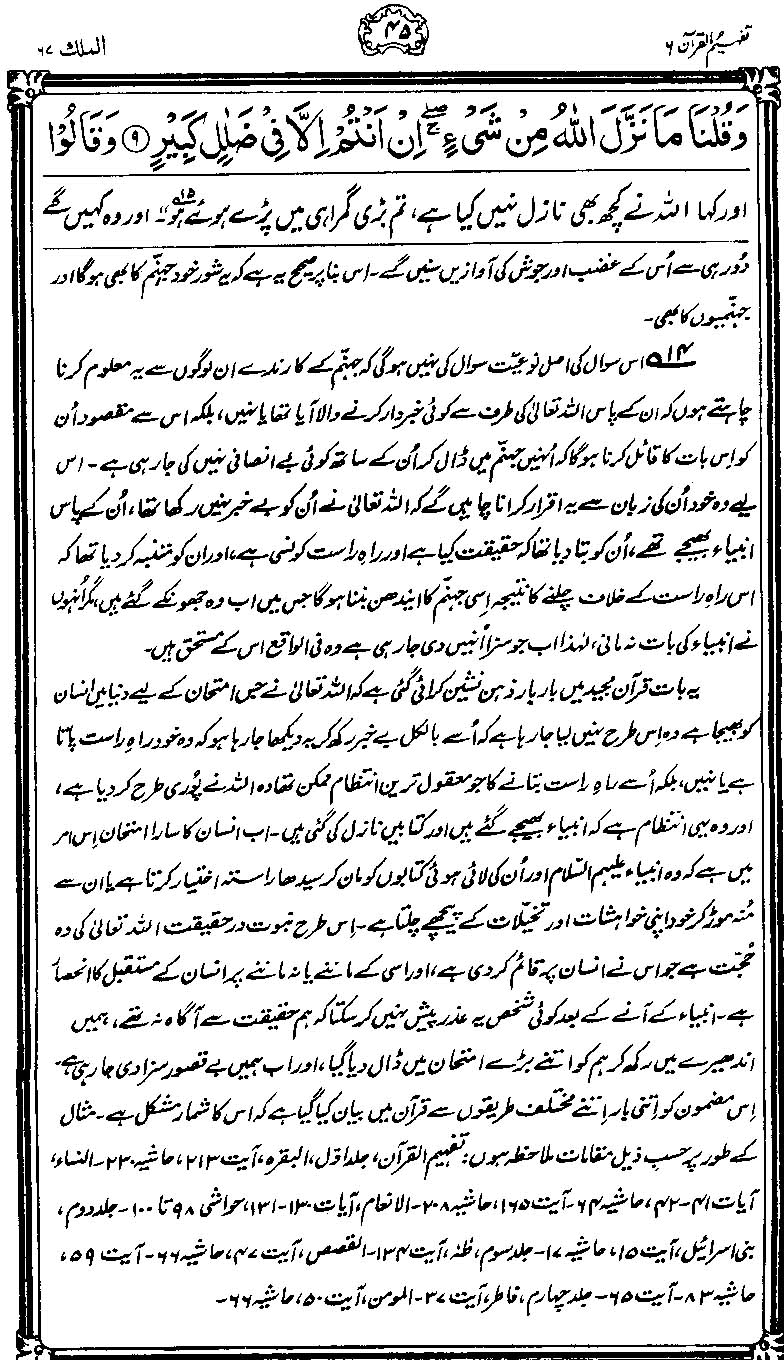 تفہیم القرآن ۶
۴۵
الملک ۶۷
وَقُلْنَا مَا نَزَّلَ اللّٰهُ مِنْ شَیْءٍ ۖۚ اِنْ اَنْتُمْ اِلَّا فِیْ ضَلٰلٍ كَبِیْرٍ ۹ وَقَالُوْا
اور کہا اللہ نے کچھ بھی نازل نہیں کیا ہے، تم بڑی گمراہی میں پڑے ہوئے ہو ۱۵۔" اور وہ کہیں گے
دُور ہی سے اُس کے غضب اور جوش کی آوازیں سنیں گے۔ اس بنا پر صحیح یہ ہے کہ یہ شور خود جہنّم کا بھی ہوگا اور
جہنّمیوں کا بھی۔
۱۴ اس سوال کی اصل نوعیّت سوال کی نہیں ہوگی کہ جہنّم کے کارندے ان لوگوں سے یہ معلوم کرنا
چاہتے ہوں کہ ان کے پاس اللہ تعالیٰ کی طرف سے کوئی خبردار کرنے والا آیا تھا یا نہیں، بلکہ اس سے مقصود اُن
کو اِس بات کا قائل کرنا ہوگا کہ اُنہیں جہنّم میں ڈال کر اُن کے ساتھ کوئی بے انصافی نہیں کی جا رہی ہے۔ اس
لیے وہ خود اُن کی زبان سے یہ اقرار کرانا چاہیں گے کہ اللہ تعالیٰ نے اُن کو بے خبر نہیں رکھا تھا، اُن کے پاس
انبیاء بھیجے تھے، اُن کو بتا دیا تھا کہ حقیقت کیا ہے اور راہِ راست کونسی ہے، اور ان کو متنبہ کر دیا تھا کہ
اس راہِ راست کے خلاف چلنے کا نتیجہ اِسی جہنّم کا ایندھن بننا ہوگا جس میں اب وہ جھونکے گئے ہیں، مگر اُنہوں
نے انبیاء کی بات نہ مانی، لہٰذا اب جو سزا اُنہیں دی جا رہی ہے وہ فی الواقع اس کے مستحق ہیں۔
یہ بات قرآن مجید میں بار بار ذہن نشین کرائی گئی ہے کہ اللہ تعالیٰ نے جس امتحان کے لیے دنیا میں انسان
کو بھیجا ہے وہ اِس طرح نہیں لیا جا رہا ہے کہ اُسے بالکل بے خبر رکھ کر یہ دیکھا جا رہا ہو کہ وہ خود راہِ راست پاتا
ہے یا نہیں، بلکہ اُسے راہِ راست بتانے کا جو معقول ترین انتظام ممکن تھا وہ اللہ نے پُوری طرح کر دیا ہے،
اور وہ یہی انتظام ہے کہ انبیاء بھیجے گئے ہیں اور کتابیں نازل کی گئی ہیں۔ اب انسان کا سارا امتحان اِس امر
میں ہے کہ وہ انبیاء علیہم السّلام اور اُن کی لائی ہوئی کتابوں کو مان کر سیدھا راستہ اختیار کرتا ہے یا ان سے
مُنہ موڑ کر خود اپنی خواہشات اور تخیّلات کے پیچھے چلتا ہے۔ اِس طرح نبوت درحقیقت اللہ تعالیٰ کی وہ
حُجّت ہے جو اس نے انسان پر قائم کر دی ہے، اور اسی کے ماننے یا نہ ماننے پر انسان کے مستقبل کا انحصار
ہے۔ انبیاء کے آنے کے بعد کوئی شخص یہ عذر پیش نہیں کر سکتا کہ ہم حقیقت سے آگاہ نہ تھے، ہمیں
اندھیرے میں رکھ کر ہم کو اتنے بڑے امتحان میں ڈال دیا گیا، اور اب ہمیں بے قصور سزا دی جا رہی ہے۔
اِس مضمون کو اِتنی بار اِتنے مختلف طریقوں سے قرآن میں بیان کیا گیا ہے کہ اس کا شمار مشکل ہے۔ مثال
کے طور پر حسب ذیل مقامات ملاحظہ ہوں: تفہیم القرآن، جلد اوّل، البقرہ، آیت ۲۱۳، حاشیہ ۲۳۰۔ النساء،
آیات ۴۱-۴۲، حاشیہ ۶۴۔ آیت ۱۶۵، حاشیہ ۲۰۸۔ الانعام، آیات ۱۳۰-۱۳۱، حواشی ۹۸ تا ۱۰۰۔ جلد دوم،
بنی اسرائیل، آیت ۱۵، حاشیہ ۱۷۔ جلد سوم، طٰہٰ، آیت ۱۳۴۔ القصص، آیت ۴۷، حاشیہ ۶۶۔ آیت ۵۹،
حاشیہ ۸۳۔ آیت ۶۵۔ جلد چہارم، فاطر، آیت ۳۷۔ المومن، آیت ۵۰، حاشیہ ۶۶۔